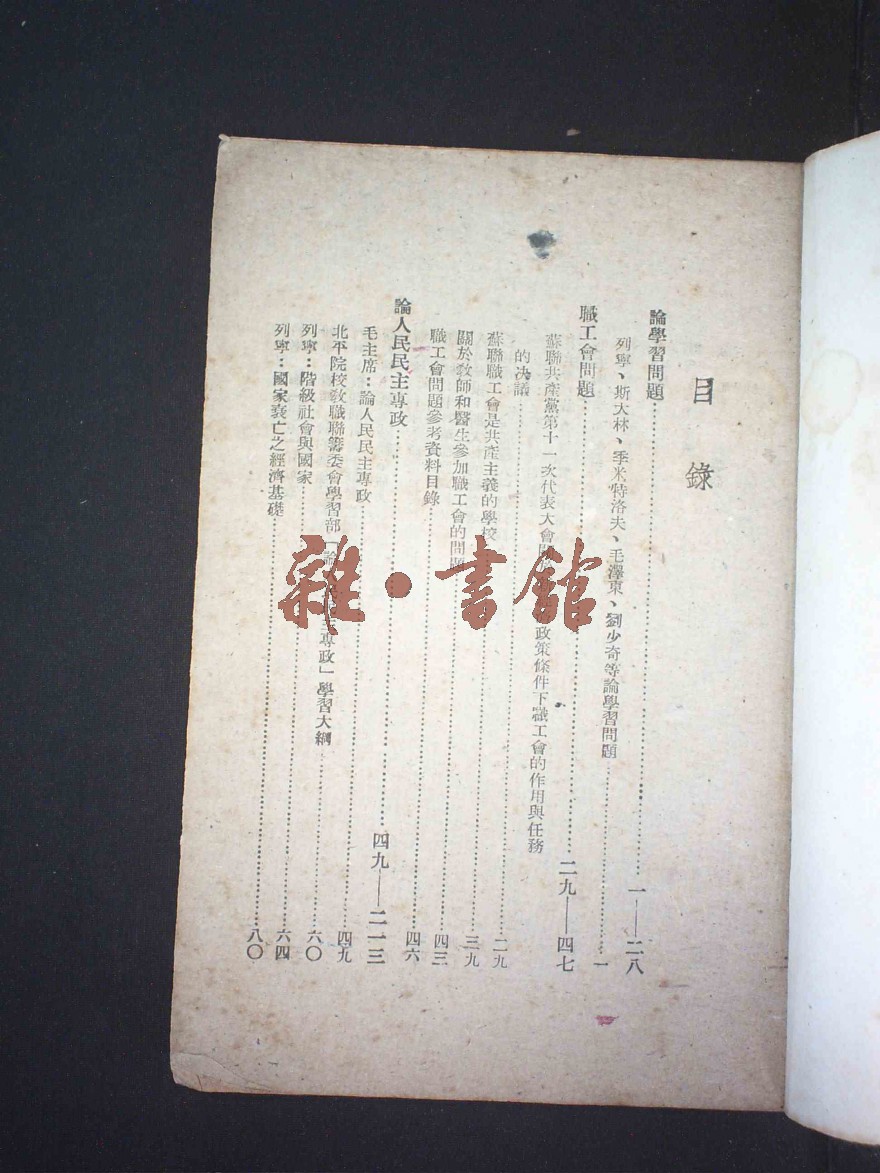 目錄
論學習問題……一——二八
列寧、斯大林、季米特洛夫、毛澤東、劉少奇等論學習問題……一
職工會問題……二九——四七
蘇聯共產黨第十一次代表大會關 政策條件下職工會的作用與任務
的决議……二九
蘇聯職工會是共產主義的學校……三九
關於教師和醫生參加職工會的問題……四三
職工會問題參考資料目錄……四六
論人民民主專政……四九——二一三
毛主席：論人民民主專政……四九
北平院校教職聯籌委會學習部「論 主專政」學習大綱……六〇
列寧：階級社會與國家……六四
列寧：國家衰亡之經濟基礎……八〇
雜·書館